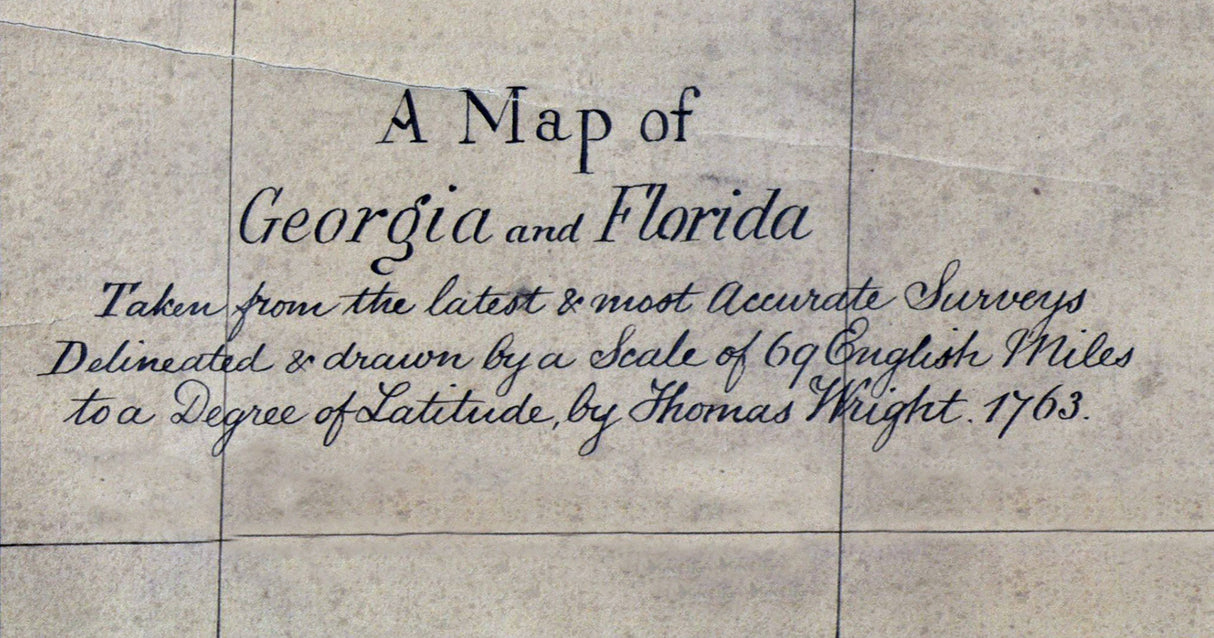 A Map of
Georgia and Florida
Taken from the latest & most Accurate Surveys
Delineated & drawn by a Scale of 69 English Miles
to a Degree of Latitude, by Thomas Wright. 1763.